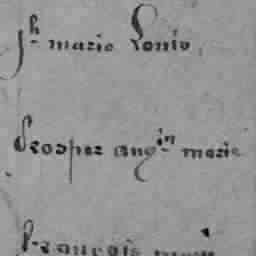 Jh marie Louis
Prosper augin marie
François marie